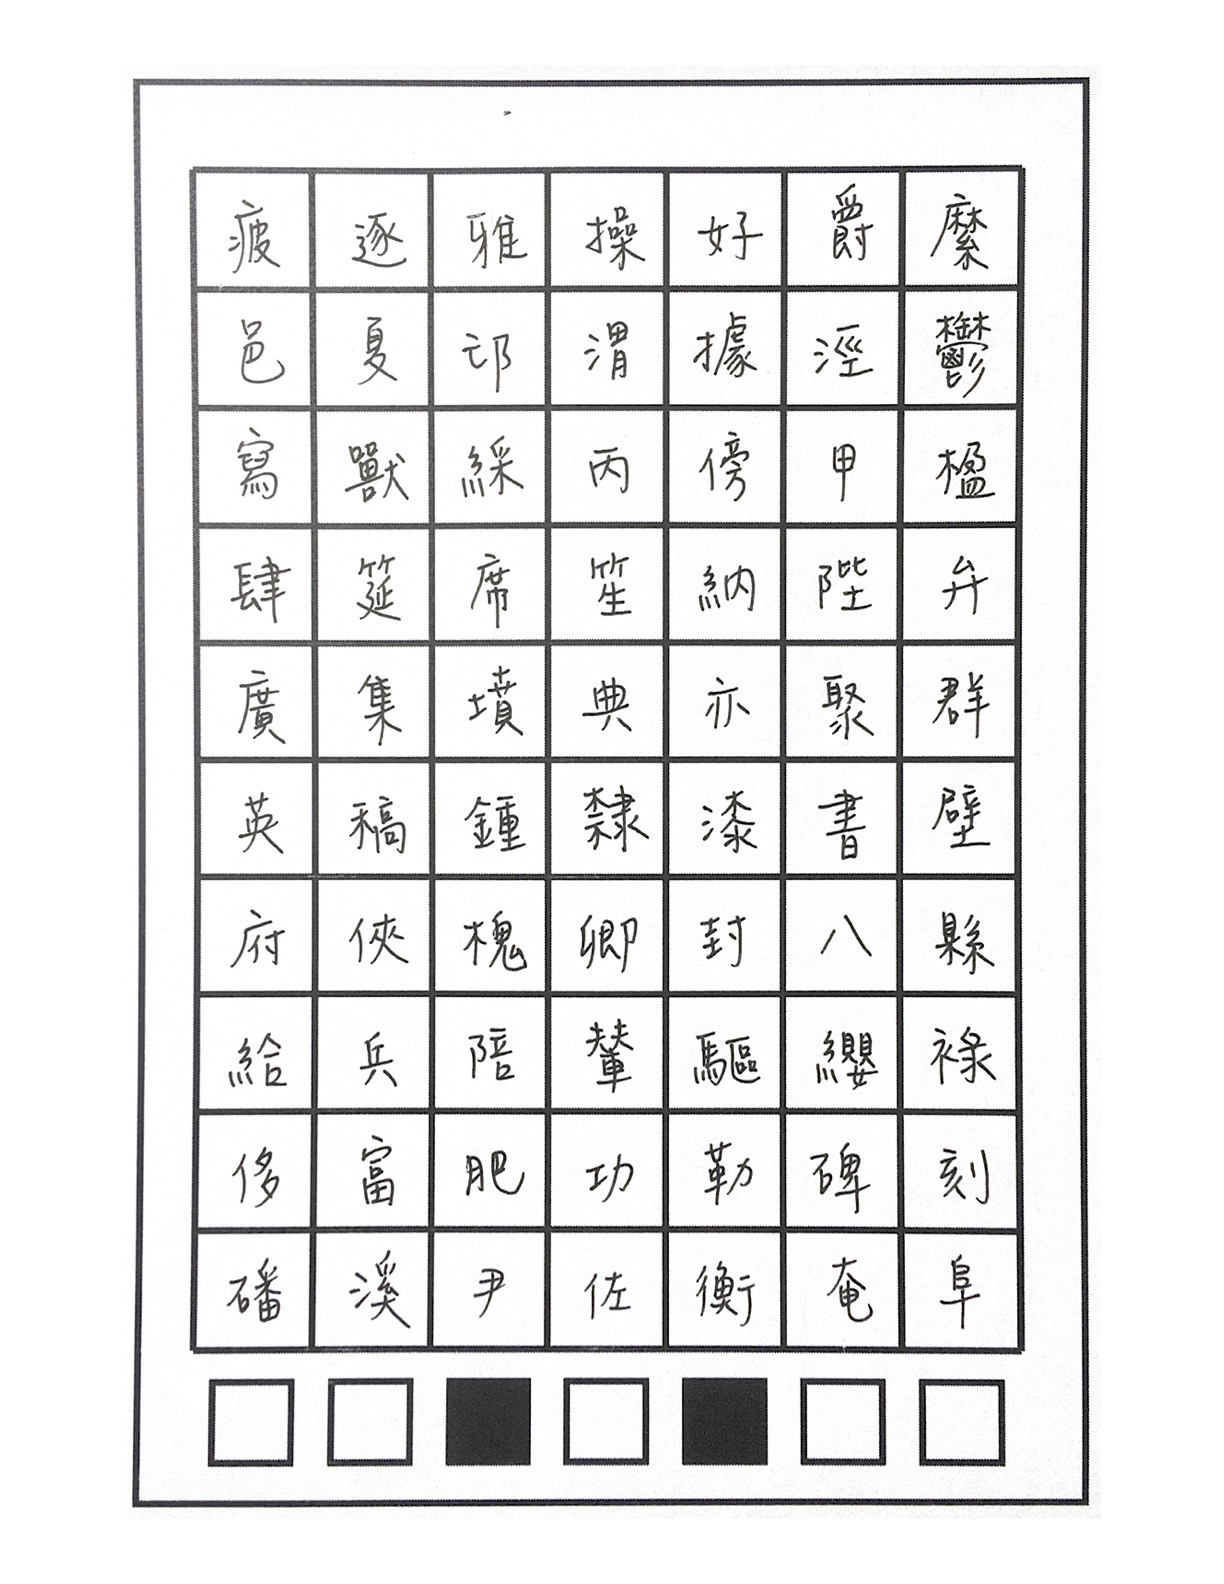 疲逐雅操好爵縻
邑夏邙渭據涇鬱
寫獸綵丙傍甲楹
肆筵席笙納陛弁
廣集墳典亦聚群
英稿鍾隸漆書壁
府俠槐卿封八縣
給兵陪輦驅纓祿
侈富肥功勒碑刻
磻溪尹佐衡奄阜